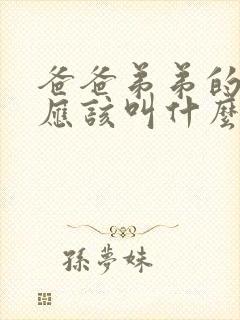 爸爸弟弟的
應該叫什麼
孫夢妹